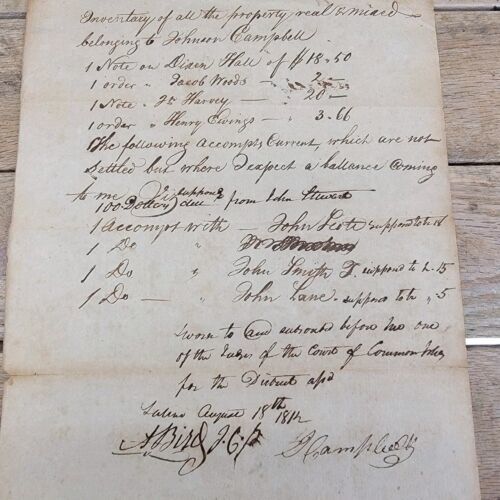 Inventary of all the property real & mixed
belonging to Johnson Campbell
1 Note on Dixen Hall of $18-50
1 order " Jacob Woods — 25-
1 Note " Js Harvey — 20-
1 order " Henry Ewings — 3-66
The following accompts Current, which are not
settled but where I expect a ballance Coming
to me Viz
100 Dollars suppose due from John Stewart
1 Accompt with John Leste suppose to be 18
1 Do "
1 Do " John Smith T. suppose to be 15
1 Do — " John Lane - suppose to be " 5
Sworn to and subscribed before me one
of the Judges of the Court of Common Pleas
for the District afsd
Salem August 18th 1812
A Bird J. C. P. J Campbell